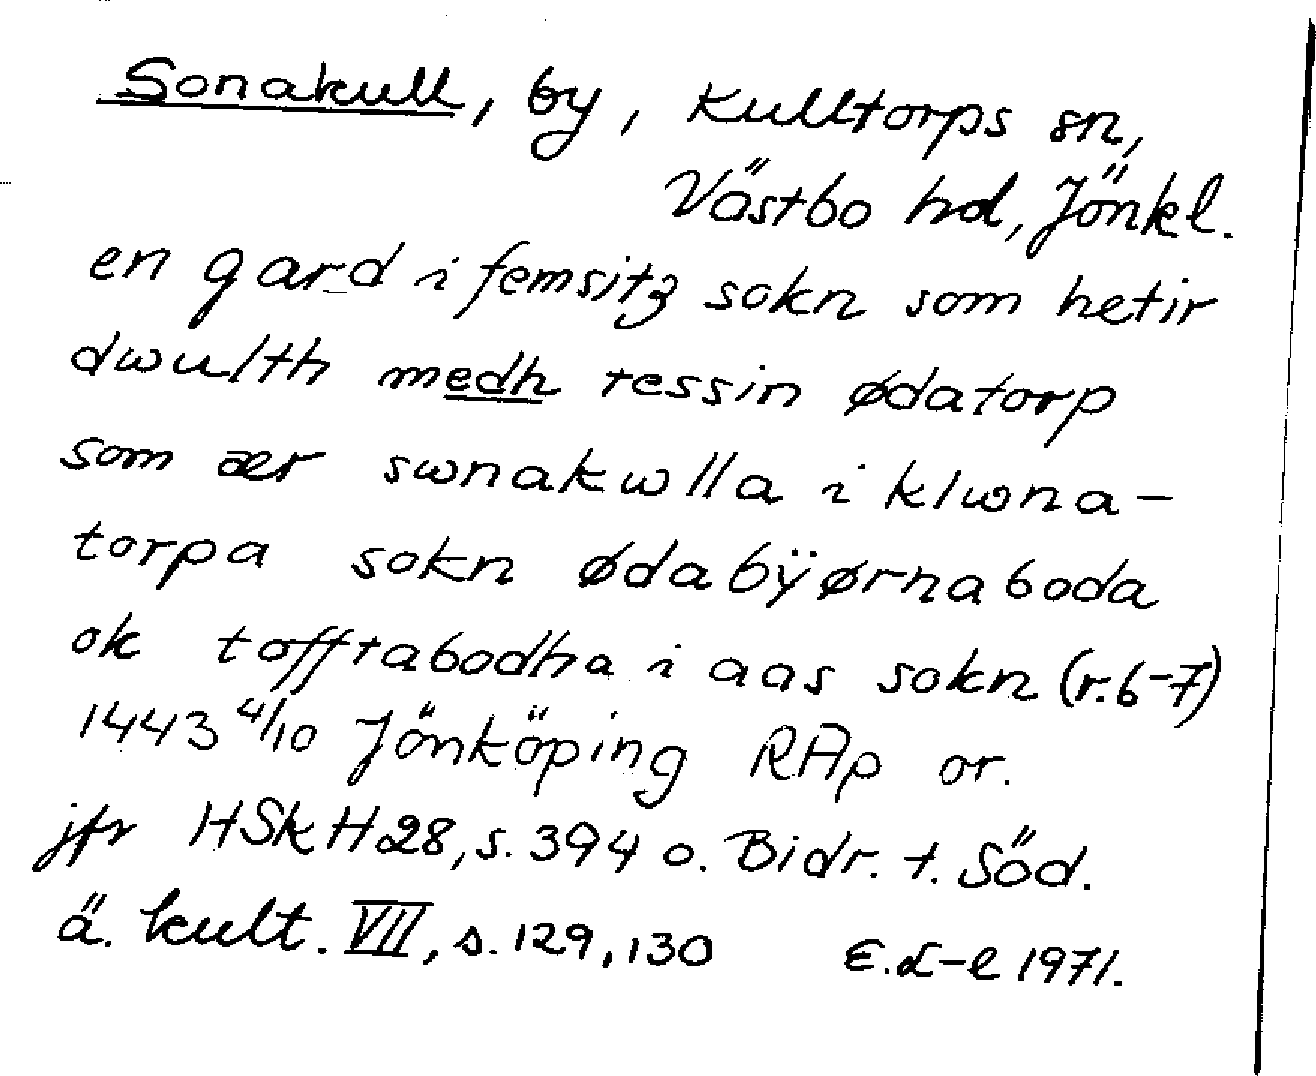 Sonakull, by, Kulltorps sn,
Västbo hd, Jönkl.
en gard i femsitz sokn som hetir
dwulth medh tessin ødatorp
som ær swnakwlla i klwna-
torpa sokn ødabÿørnaboda
ok tofftabodha i aas sokn (r.6-7)
1443 4/10 Jönköping RAp or.
jfr HSkH28, s. 394 o. Bidr. t. Söd.
ä. kult. VII, s. 129, 130 E.L-l 1971.